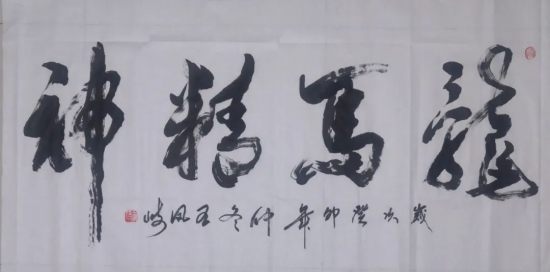 龍馬精神
歲次癸卯年仲冬石风岐